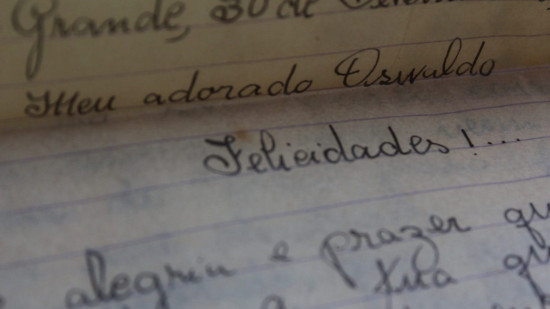 Grande, 30 de
Meu adorado Oswaldo
Felicidades!...
alegria e prazer qu
tua qu